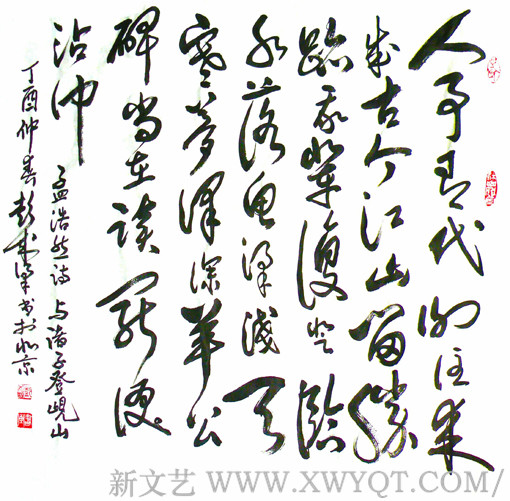 人事有代谢往来
成古今江山留胜
迹我辈复登临
水落鱼梁浅天
寒梦泽深羊公
碑尚在读罢
沾
孟浩然诗 与诸子登岘山
丁酉仲春彭书于北京
新文艺 WWW.XWYQT.COM/